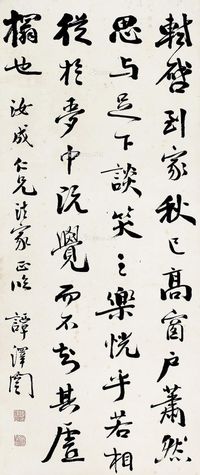 軾啓到家秋已高窗户蕭然
思与足下談笑之樂恍乎若相
從於夢中既覺而不知其處
榻也
汝成仁兄法家正臨 譚澤闓